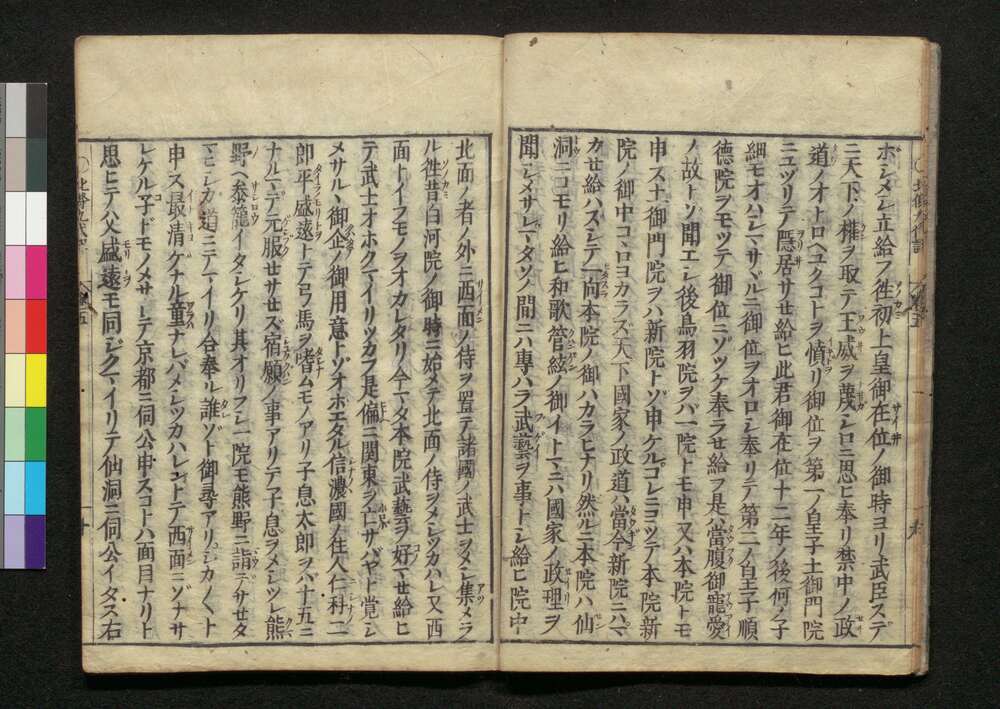 ホシメシ立給フ徃初上皇御在位ノ御時ヨリ武臣スデ
ニ天下ノ権ヲ取テ王威ヲ蔑シロニ思ヒ奉リ禁中ノ政
道ノオトロヘユクコトヲ憤リ御位ヲ第一ノ皇子土御門院
ニユヅリテ隠居サセ給ヒ此君御在位十二年ノ後何ノ子
細モオハシマサヾルニ御位ヲオロシ奉リテ第二ノ皇子順
徳院ヲモツテ御位ニゾツケ奉ラせ給フ是ハ當腹御寵愛
ノ故トゾ聞エシ後鳥羽院ヲバ一院トモ申又ハ本院トモ
申ス土御門院ヲハ新院トゾ申ケルコレニヨツテ本院新
院ノ御中コヽロヨカラズ天下國家ノ政道ハ當今新院ニハマ
カせ給ハズシテ一向本院ノ御ハカラヒナリ然ルニ本院ハ仙
洞ニコモリ給ヒ和歌管絃ノ御イトマニハ國家ノ政理ヲ
聞シメサレマタソノ間ニハ專ハラ武藝ヲ事トシ給ヒ院中
北面ノ者ノ外ニ西面ノ侍ヲ置テ諸國ノ武士ヲメシ集メラ
ル徃昔白河院ノ御時ニ始メテ北面ノ侍ヲメシツカハレ又西
面トイフモノヲオカレタリ今マタ本院武藝ヲ好マせ給ヒ
テ武士オホクマイリツカフ是偏ニ関東ヲ亡サバヤト覚シ
メサルヽ御企ノ御用意トゾオボエタル信濃國ノ住人仁科二
郎平盛遠トテ弓馬ヲ嗜ムモノアリ子息太郎ヲハ十五ニ
ナルマデ元服せサせズ宿願ノ事アリテ子息ヲメシツレ熊
野ヘ参籠イタシケリ其オリフシ一院モ熊野ニ詣デサせタ
マヒシカ道ニテマイリ合奉ル誰ゾト御尋アリシカ〱ト
申ス最清ケナル童ナレバメシツカハレントテ西面ニゾナサ
レケル子ドモノメサレテ京都ニ伺公申スコトハ面目ナリト
思ヒテ父盛遠モ同ジクマイリテ仙洞ニ伺公イタス右